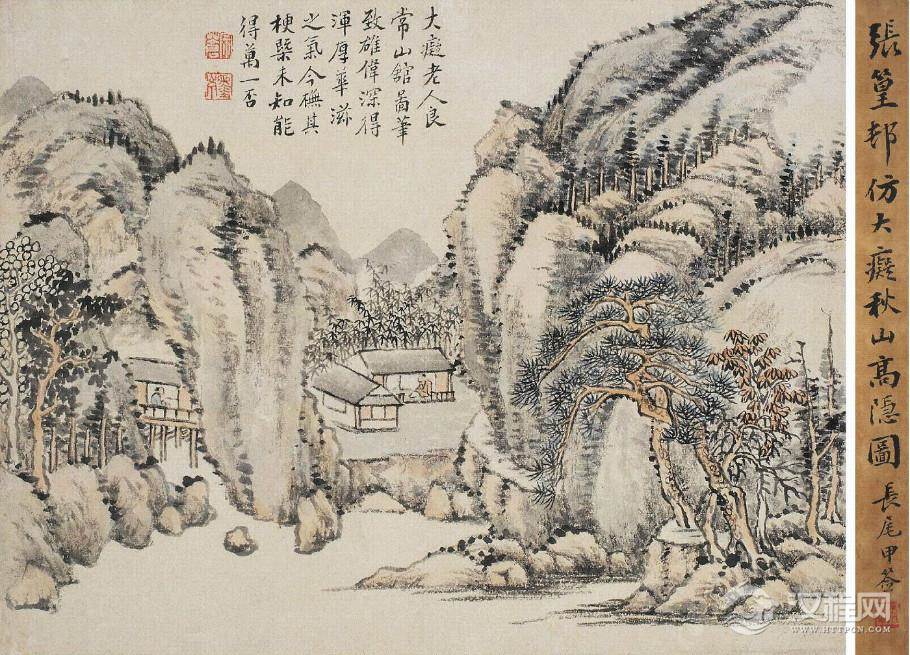 大癡老人良
常山舘啚筆
致雄偉深得
渾厚華滋
之氣今橅其
梗槩未知能
得萬一否
張篁邨仿大癡秋山高隱圖 長尾甲
汉程网
WWW.HTTPCN.COM